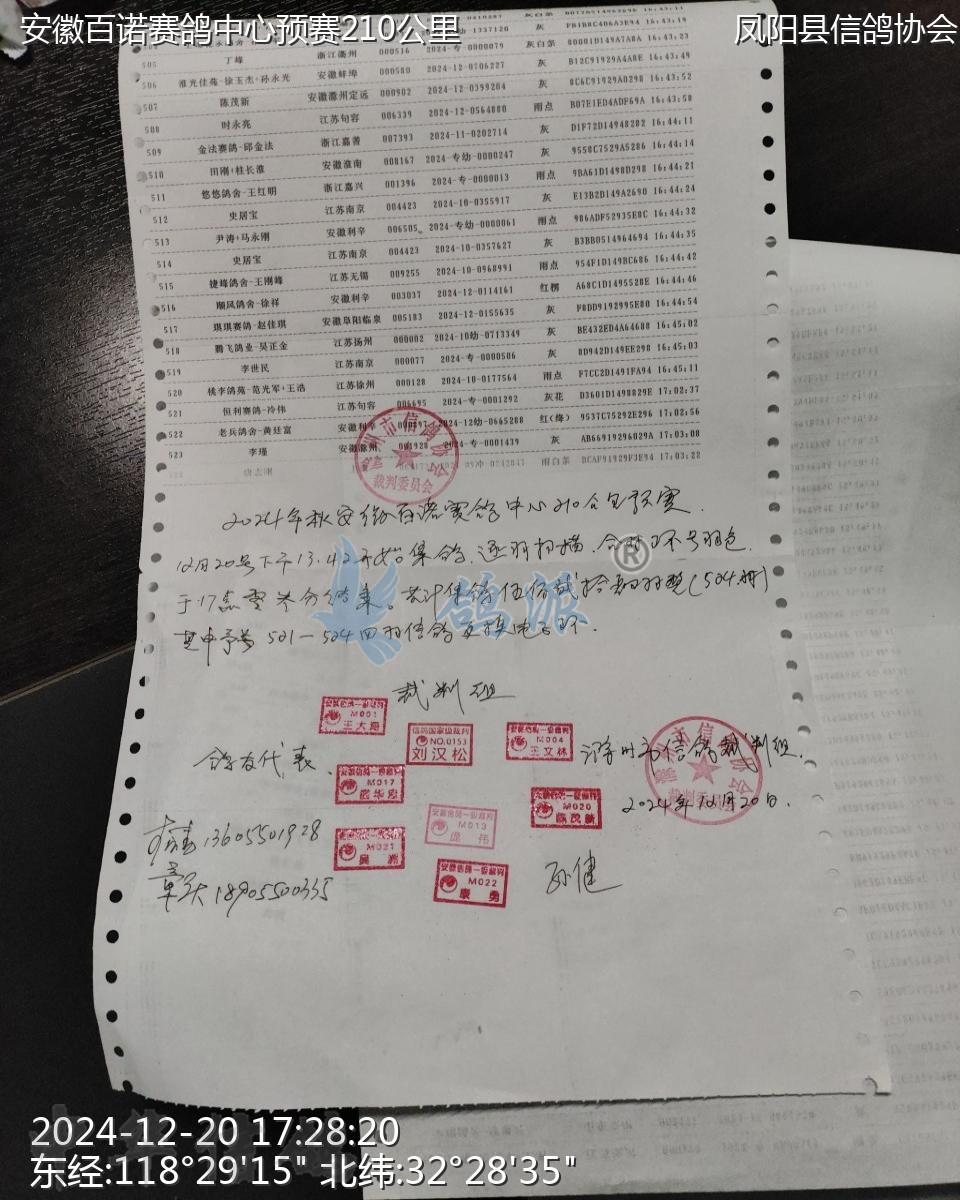 安徽百诺赛鸽中心预赛210公里
凤阳县信鸽协会
505 丁峰 浙江衢州 000516 2024-专-0000079 灰白条 80001D149A7A8A 16:43:23
506 淮光佳苑-徐玉杰+孙永光 安徽蚌埠 000580 2024-12-0706227 灰 B12C91929A4A8E 16:43:49
507 陈茂新 安徽滁州定远 000902 2024-12-0399204 灰 8C6C91929A0298 16:43:52
508 时永亮 江苏句容 006339 2024-12-0564880 雨点 B07E1ED4ADF69A 16:43:58
509 金法赛鸽-邱金法 浙江嘉善 007393 2024-11-0202714 灰 D1F72D14948282 16:44:11
510 田刚+桂长淮 安徽淮南 008167 2024-专幼-0000247 灰 9558C7529A5286 16:44:14
511 悠悠鸽舍-王红明 浙江嘉兴 001396 2024-专-0000013 雨点 9BA61D1498D298 16:44:21
512 史居宝 江苏南京 004423 2024-10-0355917 灰 E13B2D149A2690 16:44:24
513 尹涛+马永刚 安徽利辛 006505 2024-专幼-0000061 雨点 986ADF52935E8C 16:44:32
514 史居宝 江苏南京 004423 2024-10-0357627 灰 B3BB0514964694 16:44:35
515 捷峰鸽舍-王刚峰 江苏无锡 009255 2024-10-0968991 雨点 954F1D149BC686 16:44:42
516 顺风鸽舍-徐祥 安徽利辛 003037 2024-12-0114161 红楞 A68C1D1495528E 16:44:46
517 琪琪赛鸽-赵佳琪 安徽阜阳临泉 005183 2024-12-0155635 灰 F8DD9192995E80 16:44:54
518 腾飞鸽业-吴正金 江苏扬州 000002 2024-10幼-0713349 灰 BE432ED4A64688 16:45:02
519 李世民 江苏南京 000077 2024-专-0000506 灰 8D942D149EE298 16:45:03
520 桃李鸽苑-范光军+王浩 江苏徐州 000128 2024-10-0177564 雨点 F7CC2D1491FA94 16:45:11
521 恒利赛鸽-冷伟 江苏句容 006695 2024-专-0001292 灰花 D3601D1498829E 17:02:37
522 老兵鸽舍-黄廷富 安徽利辛 2024-12幼-0665288 红(绛) 9537C75292E296 17:02:56
523 李瑾 安徽滁州 001928 2024-专-0001439 灰 AB66919296029A 17:03:08
雨白条 BCAF91929F3E94 17:03:22
裁判委员会
2024年秋安徽百诺赛鸽中心210公里预赛.
12月20号下午13.42开始集鸽,逐羽扫描.合对环号羽色.
于17点零  分结束。共计集鸽伍佰贰拾  羽整(524羽)
其中序号 501—504四羽信鸽更换电子环.
鸽派®
裁判组
安徽信鸽一级裁判 M001 王大
信鸽国家级裁判 NO.0153 刘汉松
安徽信鸽一级裁判 M004 王文林
鸽友代表.
滁州市信鸽裁判组.
安徽信鸽一级裁判 M017
安徽信鸽一级裁判 M020 陈茂
裁判委员会
2024年12月20日.
安徽信鸽一级裁判 M013 伟
13605501928
安徽信鸽一级裁判 M021 吴
安徽信鸽一级裁判 M022 康勇
孙健
18905500335
2024-12-20 17:28:20
东经:118°29'15" 北纬:32°28'35"